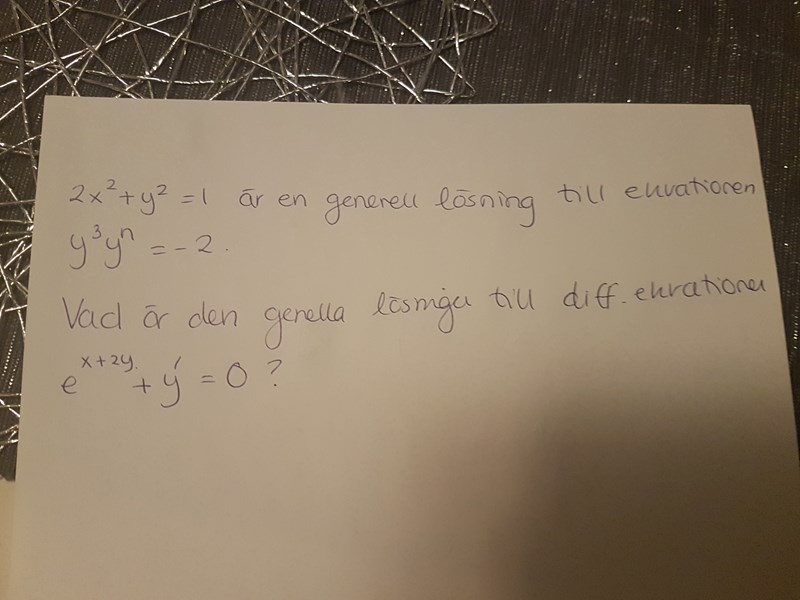 2x² + y² = 1 är en generell lösning till ekvationen
y³y" = -2.
Vad är den genella lösniga till diff. ekvationen
e^(x+2y) + y' = 0 ?